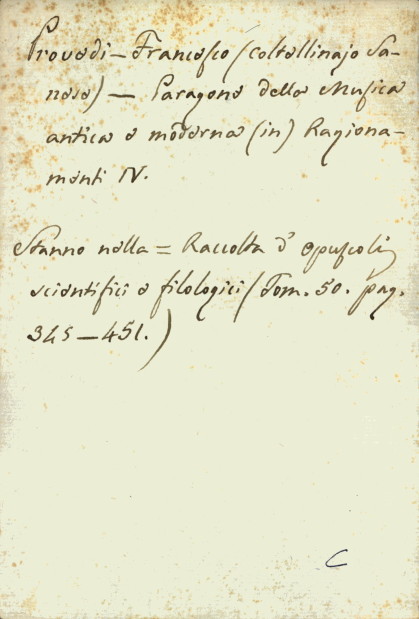 Provedi – Francesco (coltellinajo Sa-
nese) — Paragone della Musica
antica e moderna (in) Ragiona-
menti IV.
Stanno nella = Raccolta d' opuscoli
scientifici e filologici (Tom. 50. pag.
345 — 451.)
C